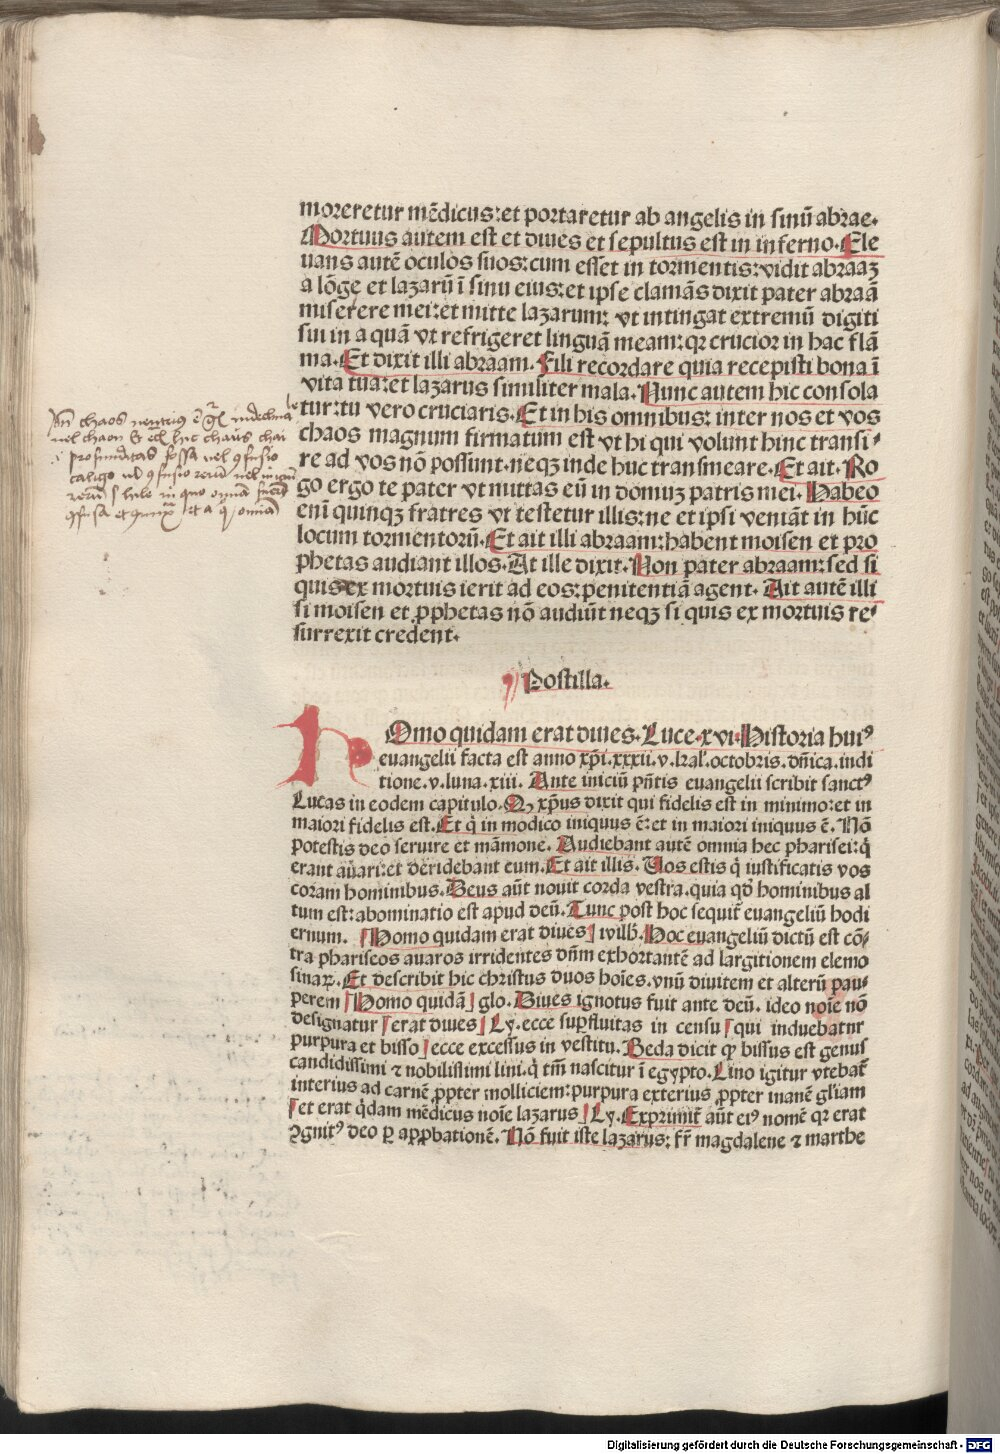 moreretur mēdicus:et portaretur ab angelis in sinū abrae.
Mortuus autem est et diues et sepultus est in inferno. Ele
uans autē oculos suos:cum esset in tormentis:vidit abraaʒ
a lōge et lazarū ī sinu eius:et ipse clamās dixit pater abraā
miserere mei:et mitte lazarum: vt intingat extremū digiti
sui in aquā vt refrigeret linguā meam:qꝛ crucior in hac flā
ma. Et dixit illi abraam. Fili recordare quia recepisti bona ī
vita tua:et lazarus similiter mala. Nunc autem hic consola
tur:tu vero cruciaris. Et in his omnibus: inter nos et vos
chaos magnum firmatum est vt hi qui volunt hinc transi-
re ad vos nō possunt.neqꝫ inde huc transmeare. Et ait. Ro
go ergo te pater vt mittas eū in domuʒ patris mei. Habeo
enī quinqꝫ fratres vt testetur illis:ne et ipsi veniāt in hūc
locum tormentorū. Et ait illi abraam:habent moisen et pro
phetas audiant illos. At ille dixit. Non pater abraam:sed si
quis ex mortuis ierit ad eos:penitentiā agent. Ait autē illi
si moisen et ꝓphetas nō audiūt neqꝫ si quis ex mortuis re-
surrexit credent.
Postilla.
HOmo quidam erat diues. Luce.xvi. Historia huiꝰ
euangelii facta est anno xp̄i.xxxii.v.kal'.octobris.dn̄ica.indi
tione.v.luna.xiii. Ante iniciū pn̄tis euangelii scribit sanctꝰ
Lucas in eodem capitulo. Q xp̄us dixit qui fidelis est in minimo:et in
maiori fidelis est. Et q̇ in modico iniquus ē:et in maiori iniquus ē. Nō
potestis deo seruire et māmone. Audiebant autē omnia hec pharisei:q̇
erant auari:et deridebant eum. Et ait illis. Uos estis q̇ iustificatis vos
coram hominibus. Deus aūt nouit corda vestra.quia qd̄ hominibus al
tum est:abominatio est apud deū. Tunc post hoc sequit̄ euangeliū hodi
ernum. Homo quidam erat diues wilh̄. Hoc euangeliū dictū est cō-
tra phariseos auaros irridentes dn̄m exhortantē ad largitionem elemo
sinaꝝ. Et describit hic christus duos hoīes.vnū diuitem et alterū pau-
perem Homo quidā glo. Diues ignotus fuit ante deū. ideo noīe nō
designatur erat diues Ly. ecce suꝑfluitas in censu qui induebatur
purpura et bisso ecce excessus in vestitu. Beda dicit ꝙ bissus est genus
candidissimi ⁊ nobilissimi lini.q̇ tm̄ nascitur ī egypto. Lino igitur vtebat̄
interius ad carnē ꝓpter molliciem:purpura exterius ꝓpter inanē gl'iam
et erat q̇dam mēdicus noīe lazarus Ly. Exprimit̄ aūt eiꝰ nomē qꝛ erat
ꝯgnitꝰ deo ꝑ apꝓbationē. Nō fuit iste lazarus: fr̄ magdalene ⁊ marthe
Digitalisierung gefördert durch die Deutsche Forschungsgemeinschaft - DFG